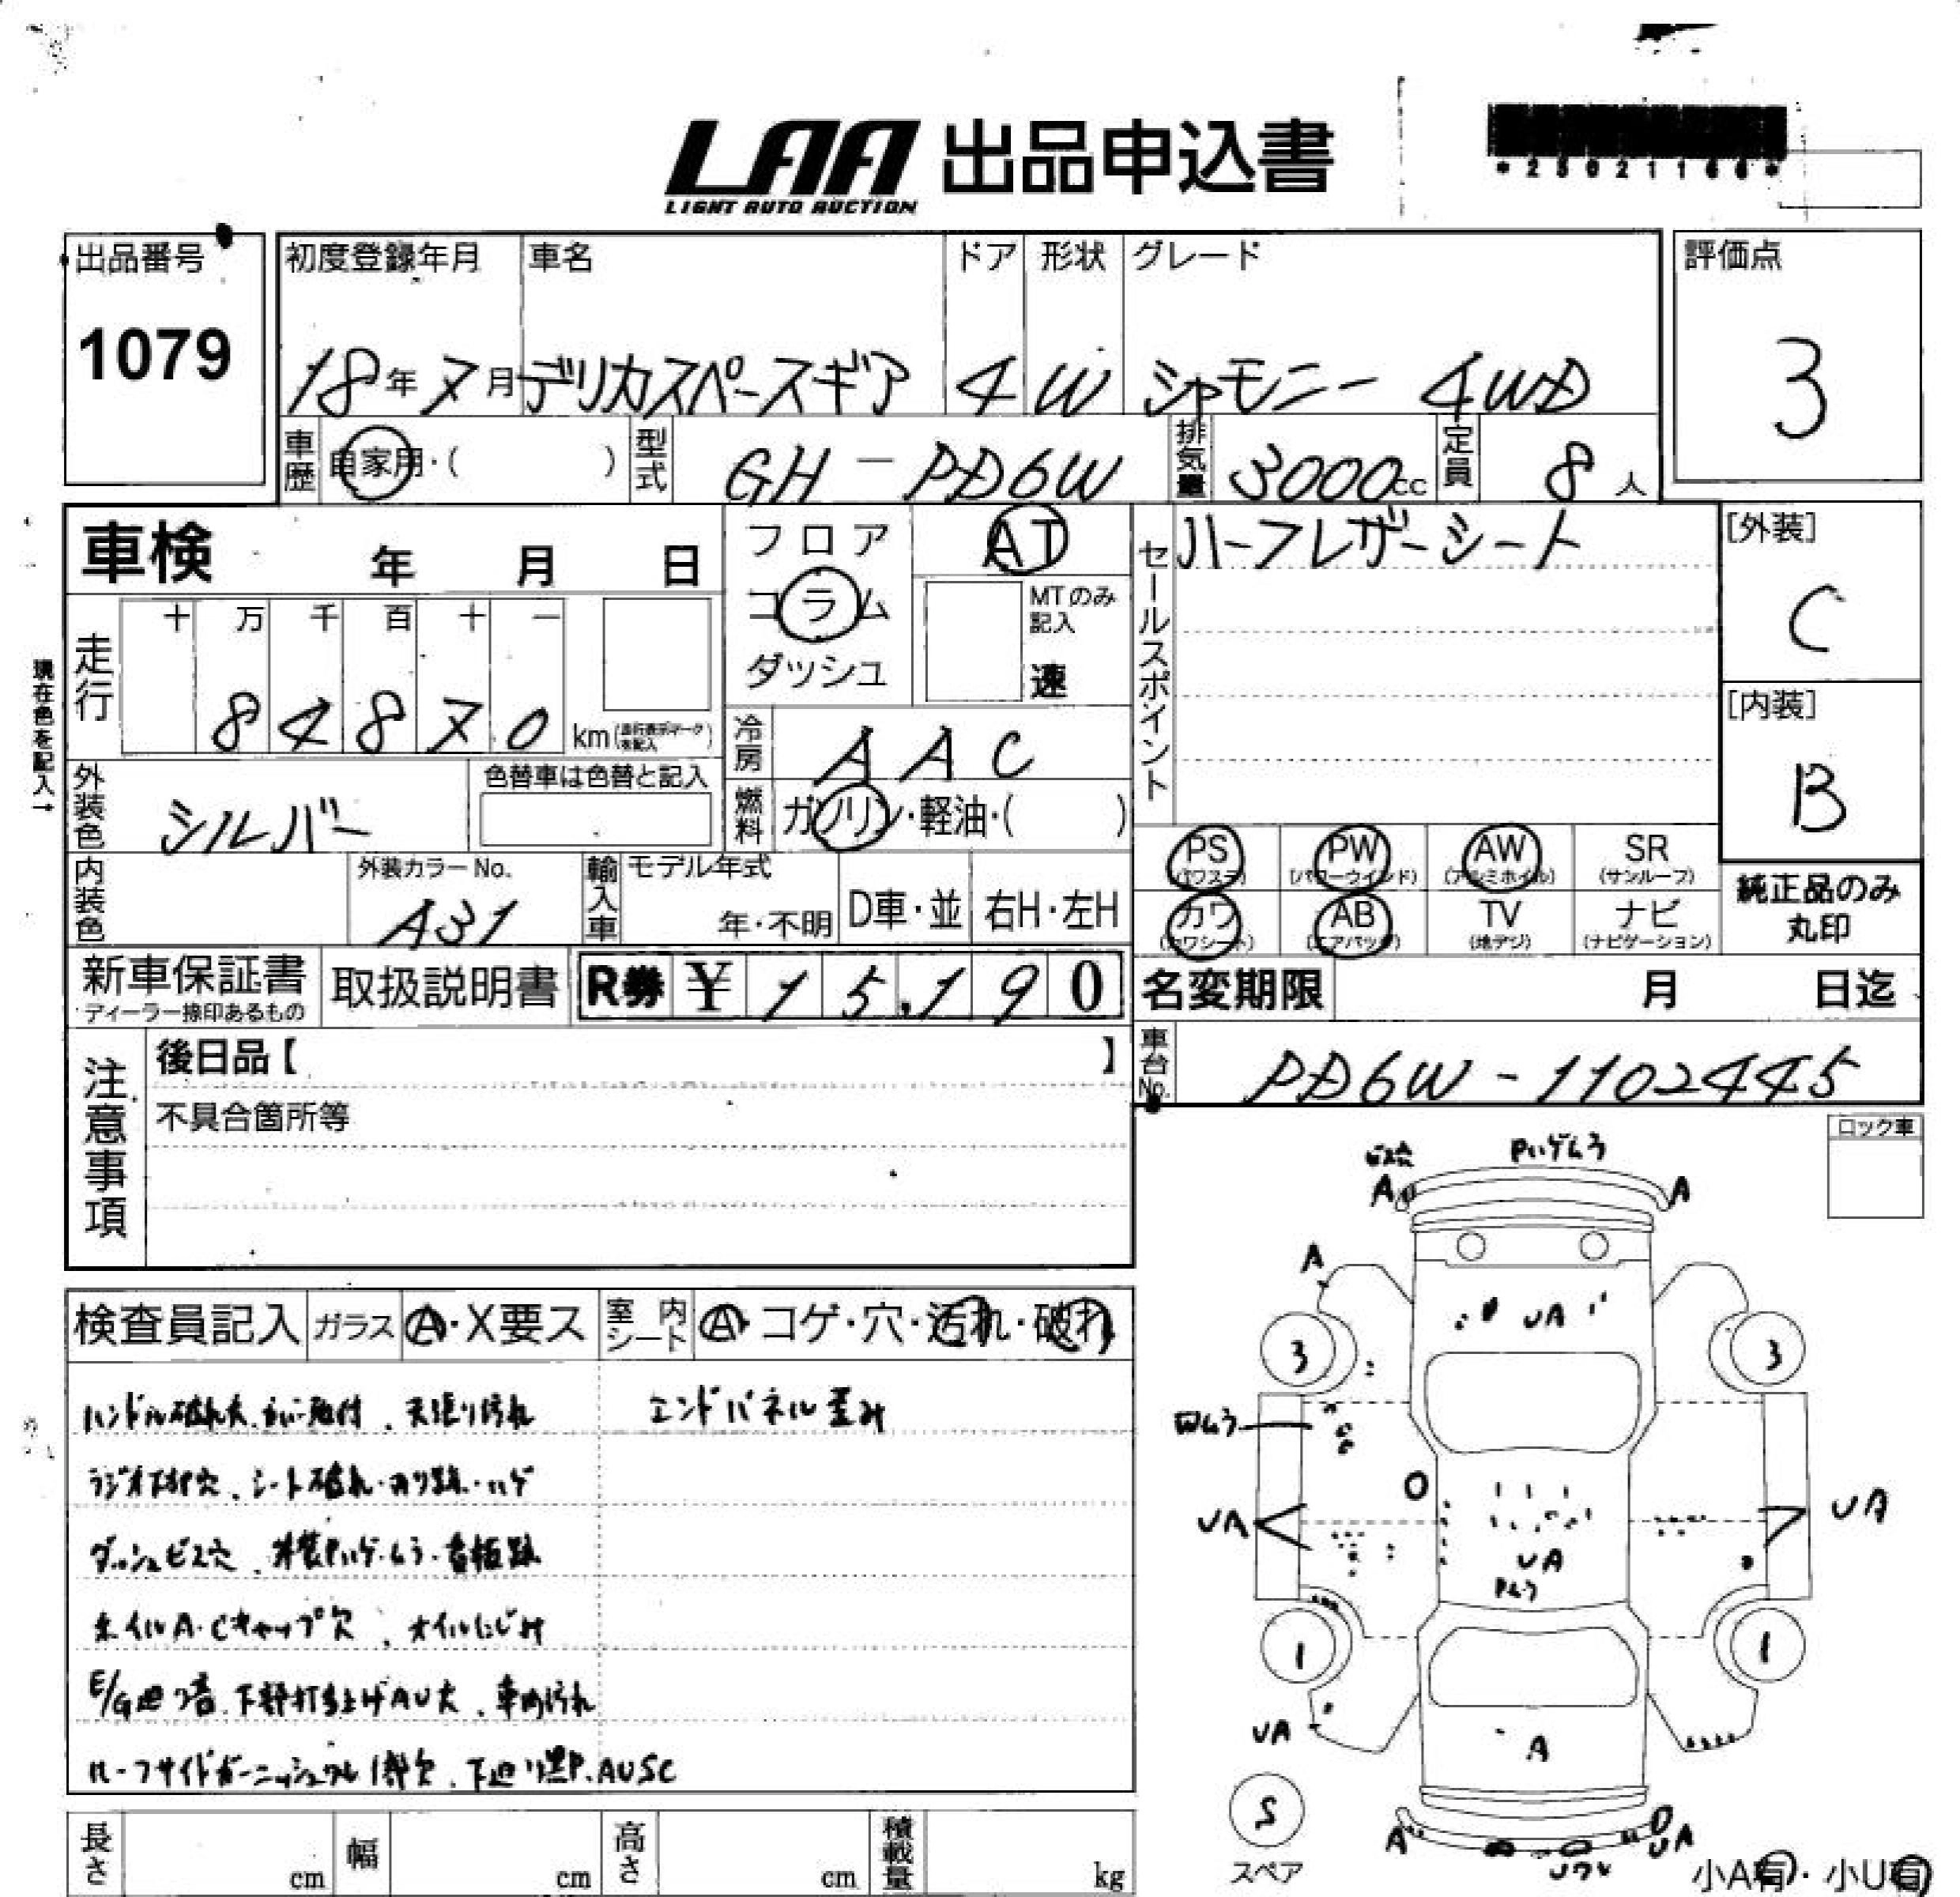 LAA 出品申込書
LIGHT AUTO AUCTION
*25021166*
出品番号
1079
初度登録年月 車名 ドア 形状 グレード
18年7月 デリカスペースギア 4 W シャモニー 4WD
評価点
3
車歴 自家用・( ) 型式 GH-PD6W 排気量 3000cc 定員 8人
車検 年 月 日
フロア
コラム
ダッシュ
AT
MTのみ記入
速
セールスポイント
ハーフレザーシート
[外装]
C
[内装]
B
現在色を記入→
走行
十 万 千 百 十 一
84870 km
冷房 AAC
外装色 シルバー
色替車は色替と記入
燃料 ガソリン・軽油・( )
内装色
外装カラーNo.
A31
輸入車 モデル年式
年・不明 D車・並 右H・左H
PS (パワステ) PW (パワーウインド) AW (アルミホイル) SR (サンルーフ)
カワ (カワシート) AB (エアバッグ) TV (地デジ) ナビ (ナビゲーション)
純正品のみ
丸印
新車保証書
ディーラー捺印あるもの
取扱説明書 R券 ¥15,190
名変期限 月 日迄
車台No. PD6W-1102445
注意事項
後日品【 】
不具合箇所等
ロック車
検査員記入 ガラス A・X要ス 室内シート A・コゲ・穴・汚れ・破れ
ハンドル破れ大 天張り汚れ
エンドパネル歪み
シート破れ・ハゲ
ダッシュビス穴 看板跡
ホイルA・Cキャップ欠、オイルにじみ
E/G廻り音、下部打ち上げAU大、車内汚れ
ルーフサイドガーニッシュワレ1部欠、下廻り黒P、AUSC
ビス穴 Pハゲムラ
A A
A
UA
3 3
UA UA
UA
Pムラ
1 1
UA
A
S
スペア
A
UA
Uワレ
小A有・小U有
長さ cm 幅 cm 高さ cm 積載量 kg